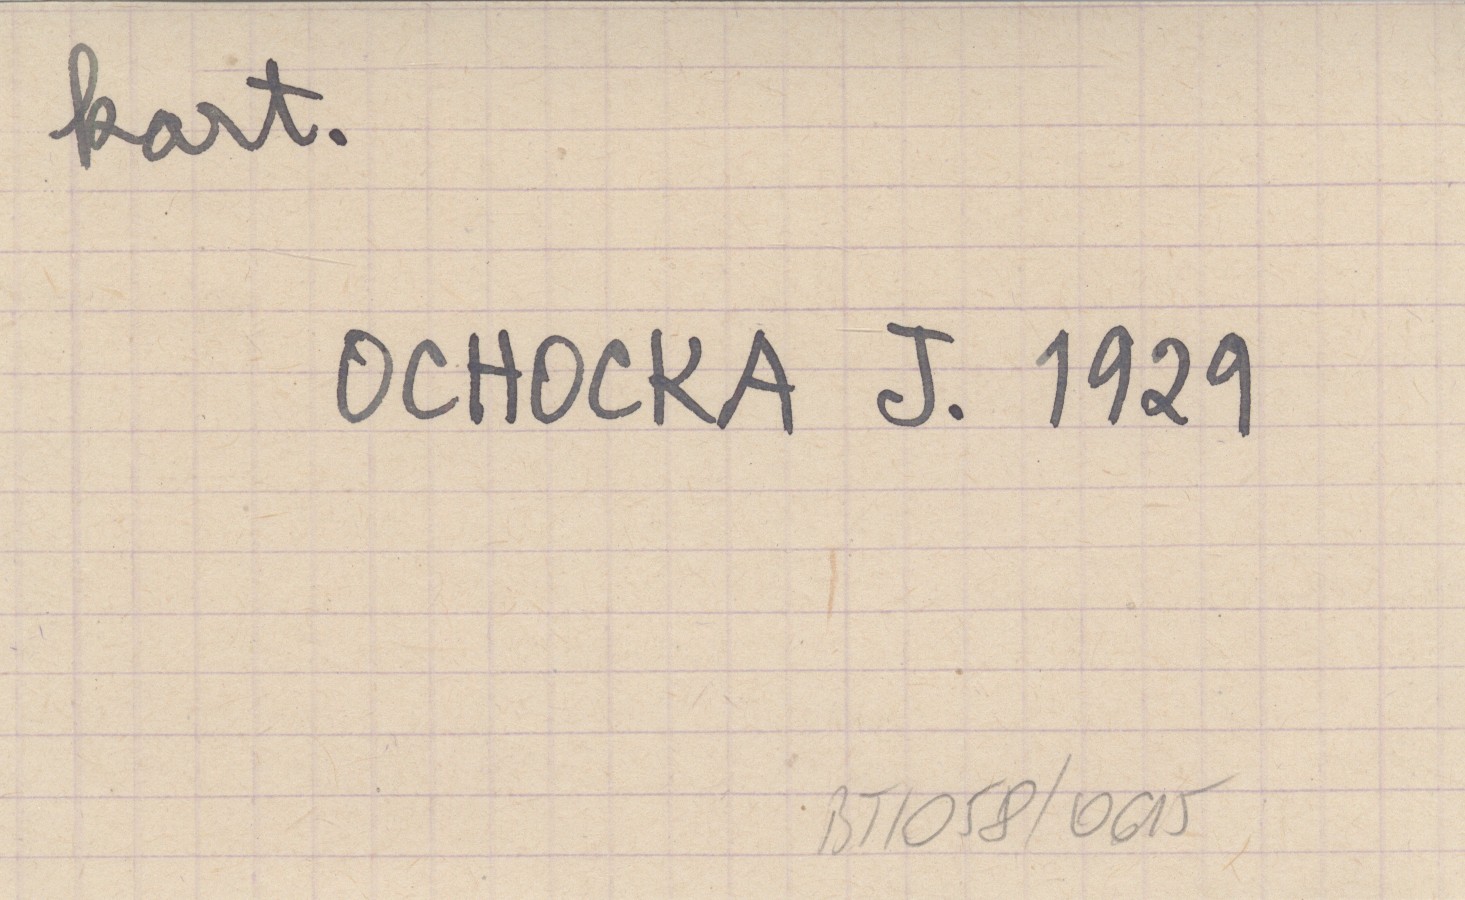 kart.
OCHOCKA J. 1929
BT1058/0615